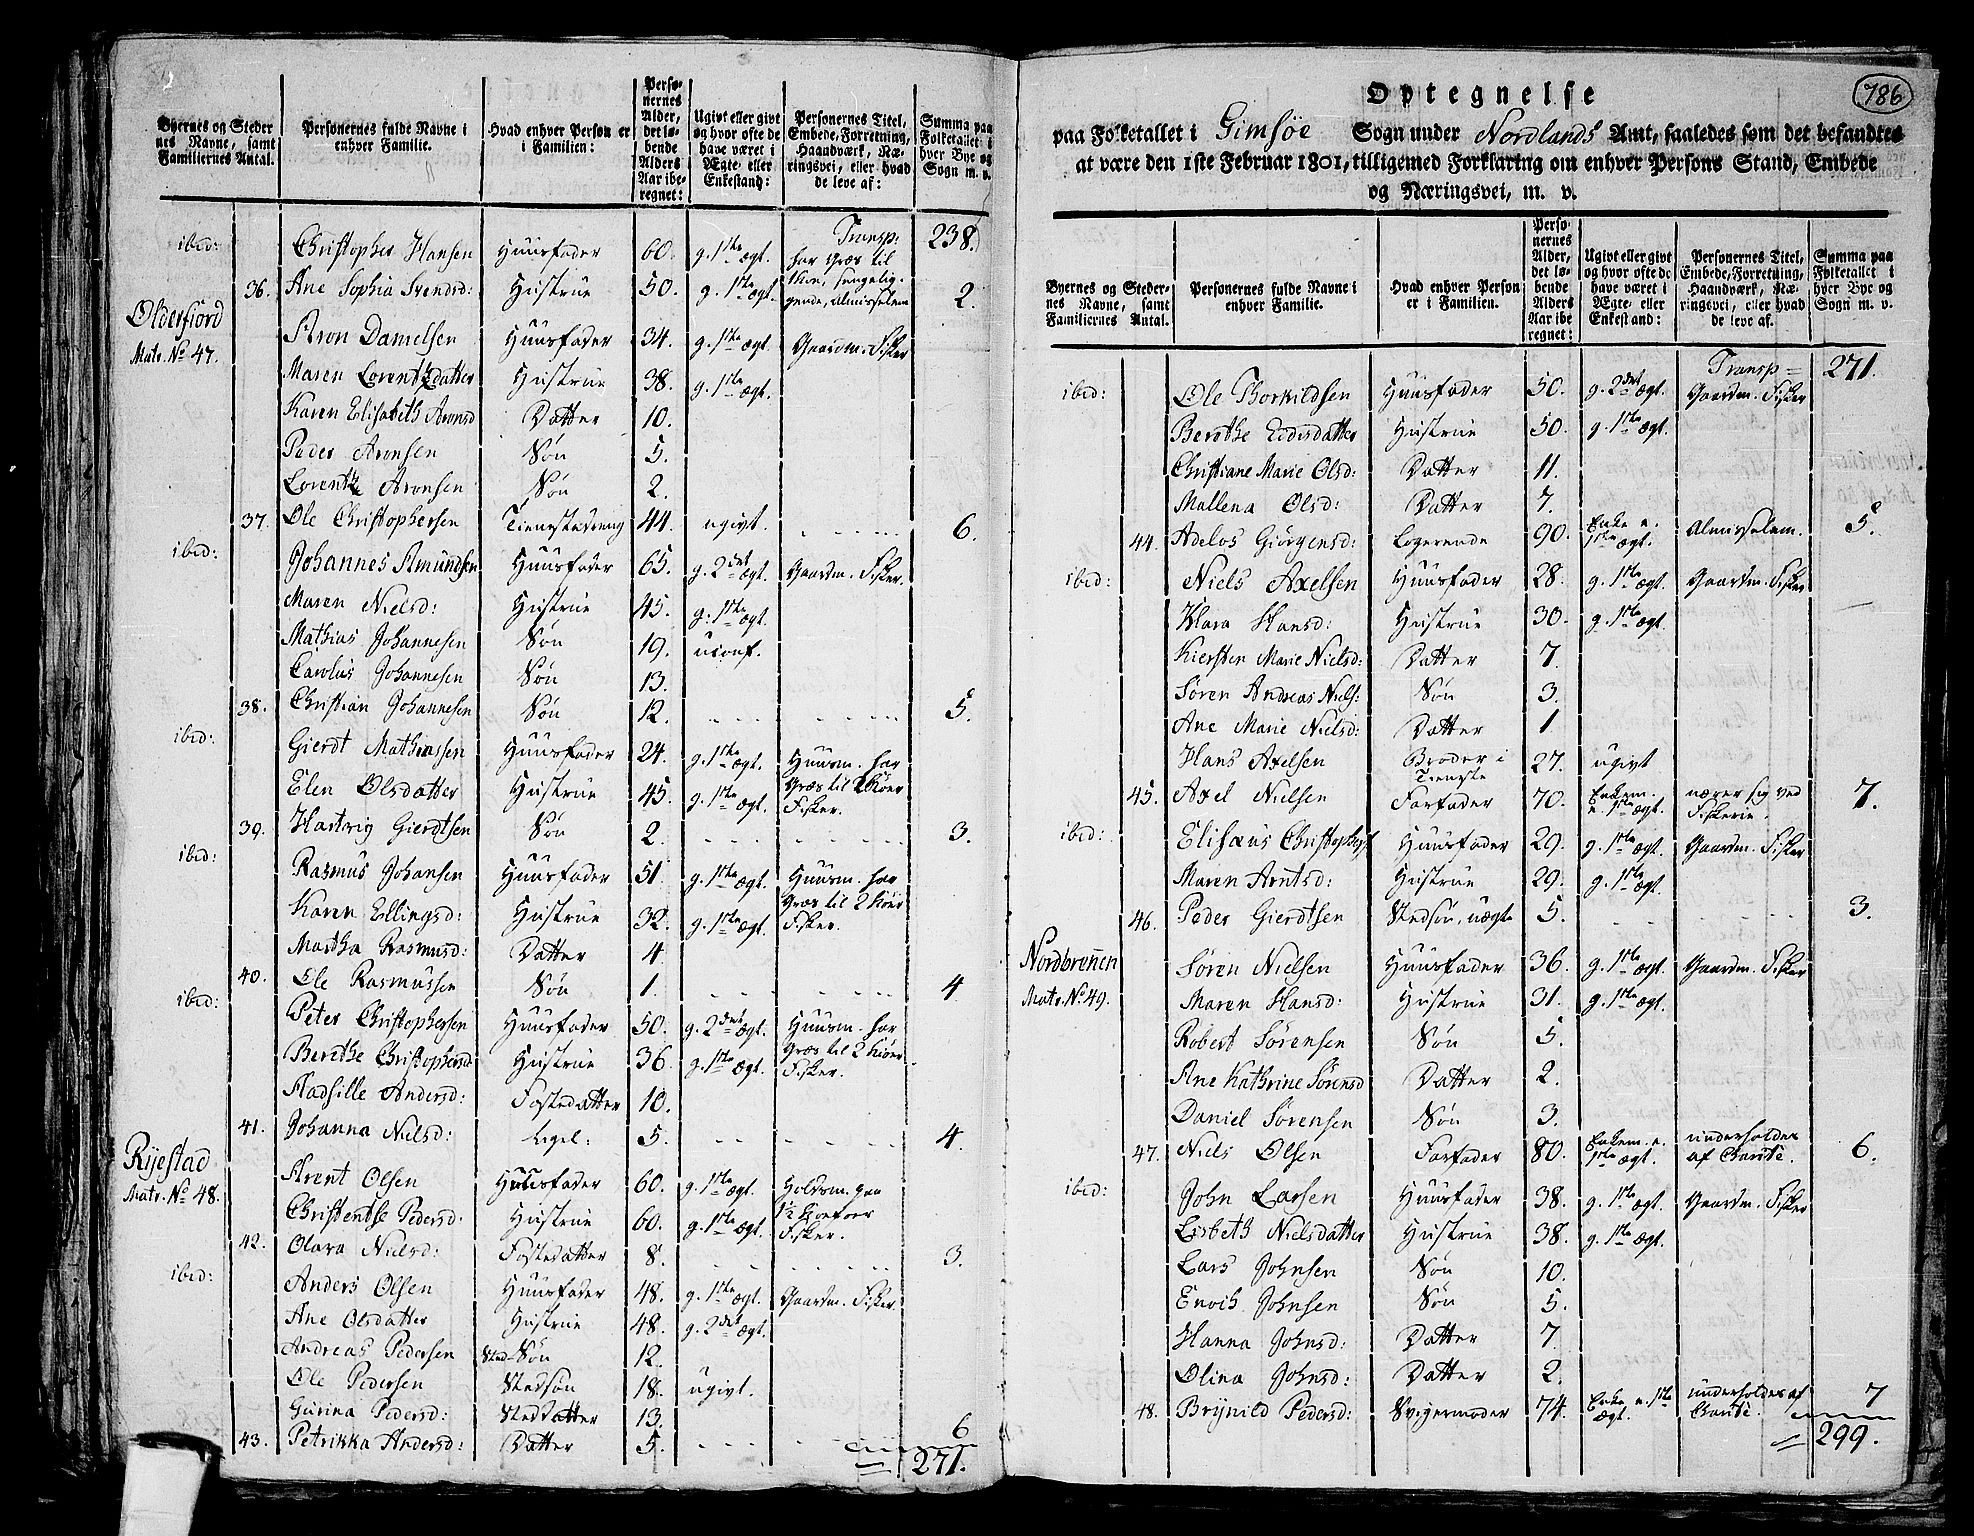 Byernes og Steder
nes Navne, samt
Familiernes Antal.
Personernes fulde Navne i
enhver Familie.
Hvad enhver Person er
i Familien:
Perso-
nernes
Alder,
det lø-
bende
Alders
Aar ibe-
regnet:
Ugivt eller givt
og hvor ofte de
have været i
Ægte- eller
Enkestand:
Personernes Titel,
Embede, Forretning,
Haandværk, Næ-
ringsvei, eller hvad
de leve af:
Summa paa
Folketallet i
hver Bye og
Sogn m. v.
Transp: 238.
ibid: Christopher Hansen Huusfader 60. g. 1ste ægt. har Græs til
36. Ane Sophia Svendsd: Hustrue 50. g. 1ste ægt. 1 Koe, sengelig-
gende, Almisselem 2.
Olderfiord
Matr. No 47.
Aron Danielsen Huusfader 34. g. 1ste ægt. Gaardm. Fisker
Maren Lorentzdatter Hustrue 38. g. 1ste ægt.
Karen Elisabeth Aronsd Datter 10.
Peder Aronsen Søn 5.
Lorentz Aronsen Søn 2.
37. Ole Christophersen Tienestedreng 44. ugivt. 6.
ibid: Johannes Amundsen Huusfader 65. g. 2det ægt. Gaardm. Fisker.
Maren Nielsd: Hustrue 45. g: 1ste ægt.
Mathias Johannesen Søn 19. uconf.
Carolus Johannesen Søn 13.
38. Christian Johannesen Søn 12. 5.
ibid: Gierdt Mathiassen Huusfader 24. g. 1ste ægt. Huusm. har
Elen Olsdatter Hustrue 45. g. 1ste ægt. Græs til 2 Kiøer
Fisker.
39. Hartvig Gierdtsen Søn 2. 3.
ibid: Rasmus Johansen Huusfader 51. g. 1ste ægt. Huusm. har
Karen Ellingsd: Hustrue 32. g. 1ste ægt. Græs til 2 Kiøer
Fisker.
Martha Rasmusd: Datter 4
40. Ole Rasmussen Søn 1. 4.
ibid: Peter Christophersen Huusfader 50. g. 2det ægt. Huusm. har
Berithe Christophersd Hustrue 36. g. 1ste ægt. Græs til 2 Kiøer
Fisker.
Adsille Andersd: Fostedatter 10.
41. Johanna Nielsd: Ligel: 5. 4.
Rijestad
Matr. No 48.
Arent Olsen Huusfader 60. g. 1ste ægt. Holdsm. paa
Christentse Pedersd: Hustrue 60. g. 1ste ægt. 1½ Kioefoer
Fisker.
42. Olava Nielsd: Fostedatter 8. 3.
ibid: Anders Olsen Huusfader 48. g. 1ste ægt. Gaardm. Fisker.
Ane Olsdatter Hustrue 48. g. 2det ægt.
Andreas Pedersen Sted-Søn 12.
Ole Pedersen Stedsøn 18. ugivt.
Gurina Pedersd: Steddatter 13.
43. Petrikka Andersd: Datter 5. 6
271.
786
Optegnelse
paa Folketallet i Gimsøe Sogn under Nordlands Amt, saaledes som det befandtes
at være den 1ste Februar 1801, tilligemed Forklaring om enhver Persons Stand, Embede
og Næringsvei, m. v.
Byernes og Steder-
nes Navne, samt
Familiernes Antal.
Personernes fulde Navne i
enhver Familie.
Hvad enhver Person
er i Familien.
Perso-
nernes
Alder,
det lø-
bende
Alders
Aar ibe
regnet:
Ugivt eller givt
og hvor ofte de
have været i
Ægte- eller
Enkestand:
Personernes Titel,
Embede, Forretning,
Haandværk, Næ-
ringsvei, eller hvad
de leve af.
Summa paa
Folketallet i
hver Bye og
Sogn m. v.
Transp= 271.
ibid: Ole Thorkildsen Huusfader 50. g. 2det ægt. Gaardm. Fisker
Berithe Edisdatter Hustrue 50. g. 1ste ægt.
Christiane Marie Olsd: Datter 11.
Mallena Olsd: Datter 7.
44. Adelos Giørgensd: Logerende 90. Enke e. 1ste ægt. Almisselem. 5.
ibid: Niels Axelsen Huusfader 28. g. 1ste ægt. Gaardm. Fisker
Klara Hansd: Hustrue 30. g. 1ste ægt.
Kiersten Marie Nielsd: Datter 7.
Søren Andreas Niels: Søn 3.
Ane Marie Nielsd: Datter 1
Hans Axelsen Broder i Tieneste 27. ugivt
45. Axel Nielsen Farfader 70. Enkem. e. 1ste ægt. nærer sig ved Fiskerie. 7.
ibid: Elisæus Christophers Huusfader 29. g. 1ste ægt. Gaardm. Fisker
Maren Arntsd: Hustrue 29. g. 1ste ægt.
46. Peder Gierdtsen Stedsøn, uægte 5. 3.
Nordbrenen
Matr. No 49.
Søren Nielsen Huusfader 36. g. 1ste ægt. Gaardm. Fisker
Maren Hansd: Hustrue 31. g. 1ste ægt.
Robert Sørensen Søn 5.
Ane Kathrine Sørensd Datter 2.
Daniel Sørensen Søn 3.
47. Niels Olsen Farfader 80. Enkem. e. 1ste ægt. underholdes af Børnene. 6.
ibid: John Larsen Huusfader 38. g. 1ste ægt. Gaardm. Fisker
Lisbeth Nielsdatter Hustrue 38. g. 1ste ægt.
Lars Johnsen Søn 10.
Enoch Johnsen Søn 5.
Hanna Johnsd: Datter 7.
Olina Johnsd: Datter 2.
48. Brynild Pedersd: Svigermoder 74. Enke e. 1ste ægt. underholdes af 7
299.